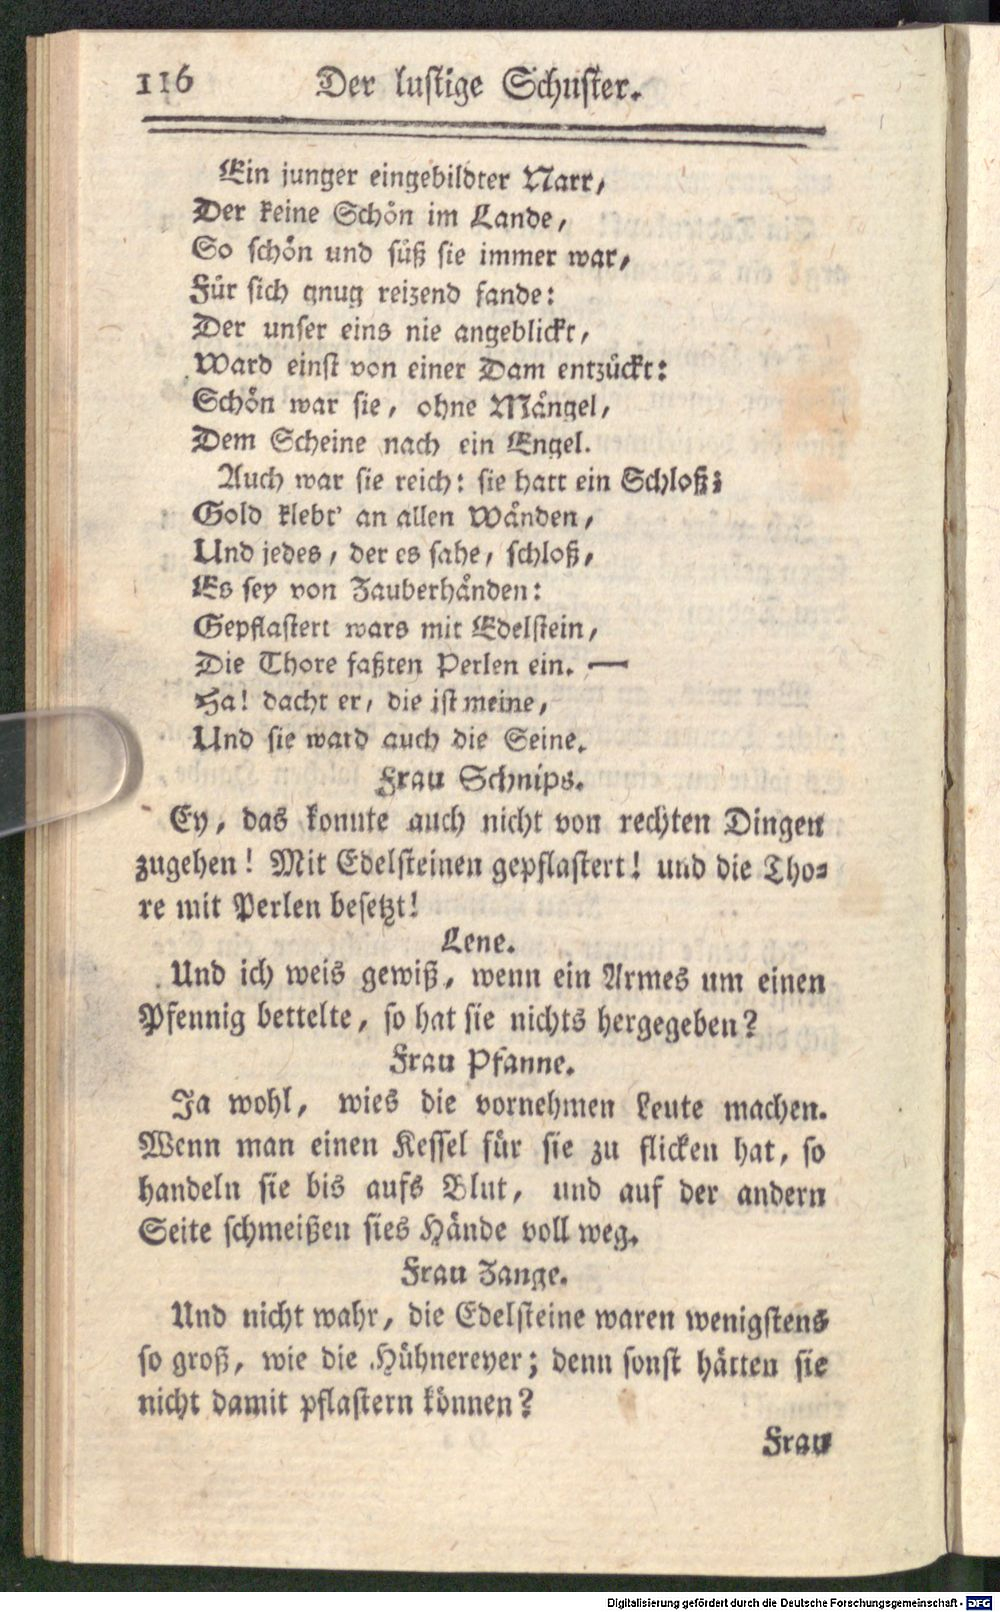 116 Der lustige Schuster.
Ein junger eingebildter Narr,
Der keine Schön im Lande,
So schön und süß sie immer war,
Für sich gnug reizend fande:
Der unser eins nie angeblickt,
Ward einst von einer Dam entzückt:
Schön war sie, ohne Mängel,
Dem Scheine nach ein Engel.
Auch war sie reich: sie hatt ein Schloß;
Gold klebt' an allen Wänden,
Und jedes, der es sahe, schloß,
Es sey von Zauberhänden:
Gepflastert wars mit Edelstein,
Die Thore faßten Perlen ein. —
Ha! dacht er, die ist meine,
Und sie ward auch die Seine.
Frau Schnips.
Ey, das konnte auch nicht von rechten Dingen
zugehen! Mit Edelsteinen gepflastert! und die Tho-
re mit Perlen besetzt!
Lene.
Und ich weis gewiß, wenn ein Armes um einen
Pfennig bettelte, so hat sie nichts hergegeben?
Frau Pfanne.
Ja wohl, wies die vornehmen Leute machen.
Wenn man einen Kessel für sie zu flicken hat, so
handeln sie bis aufs Blut, und auf der andern
Seite schmeißen sies Hände voll weg.
Frau Zange.
Und nicht wahr, die Edelsteine waren wenigstens
so groß, wie die Hühnereyer; denn sonst hätten sie
nicht damit pflastern können?
Frau
Digitalisierung gefördert durch die Deutsche Forschungsgemeinschaft - DFG